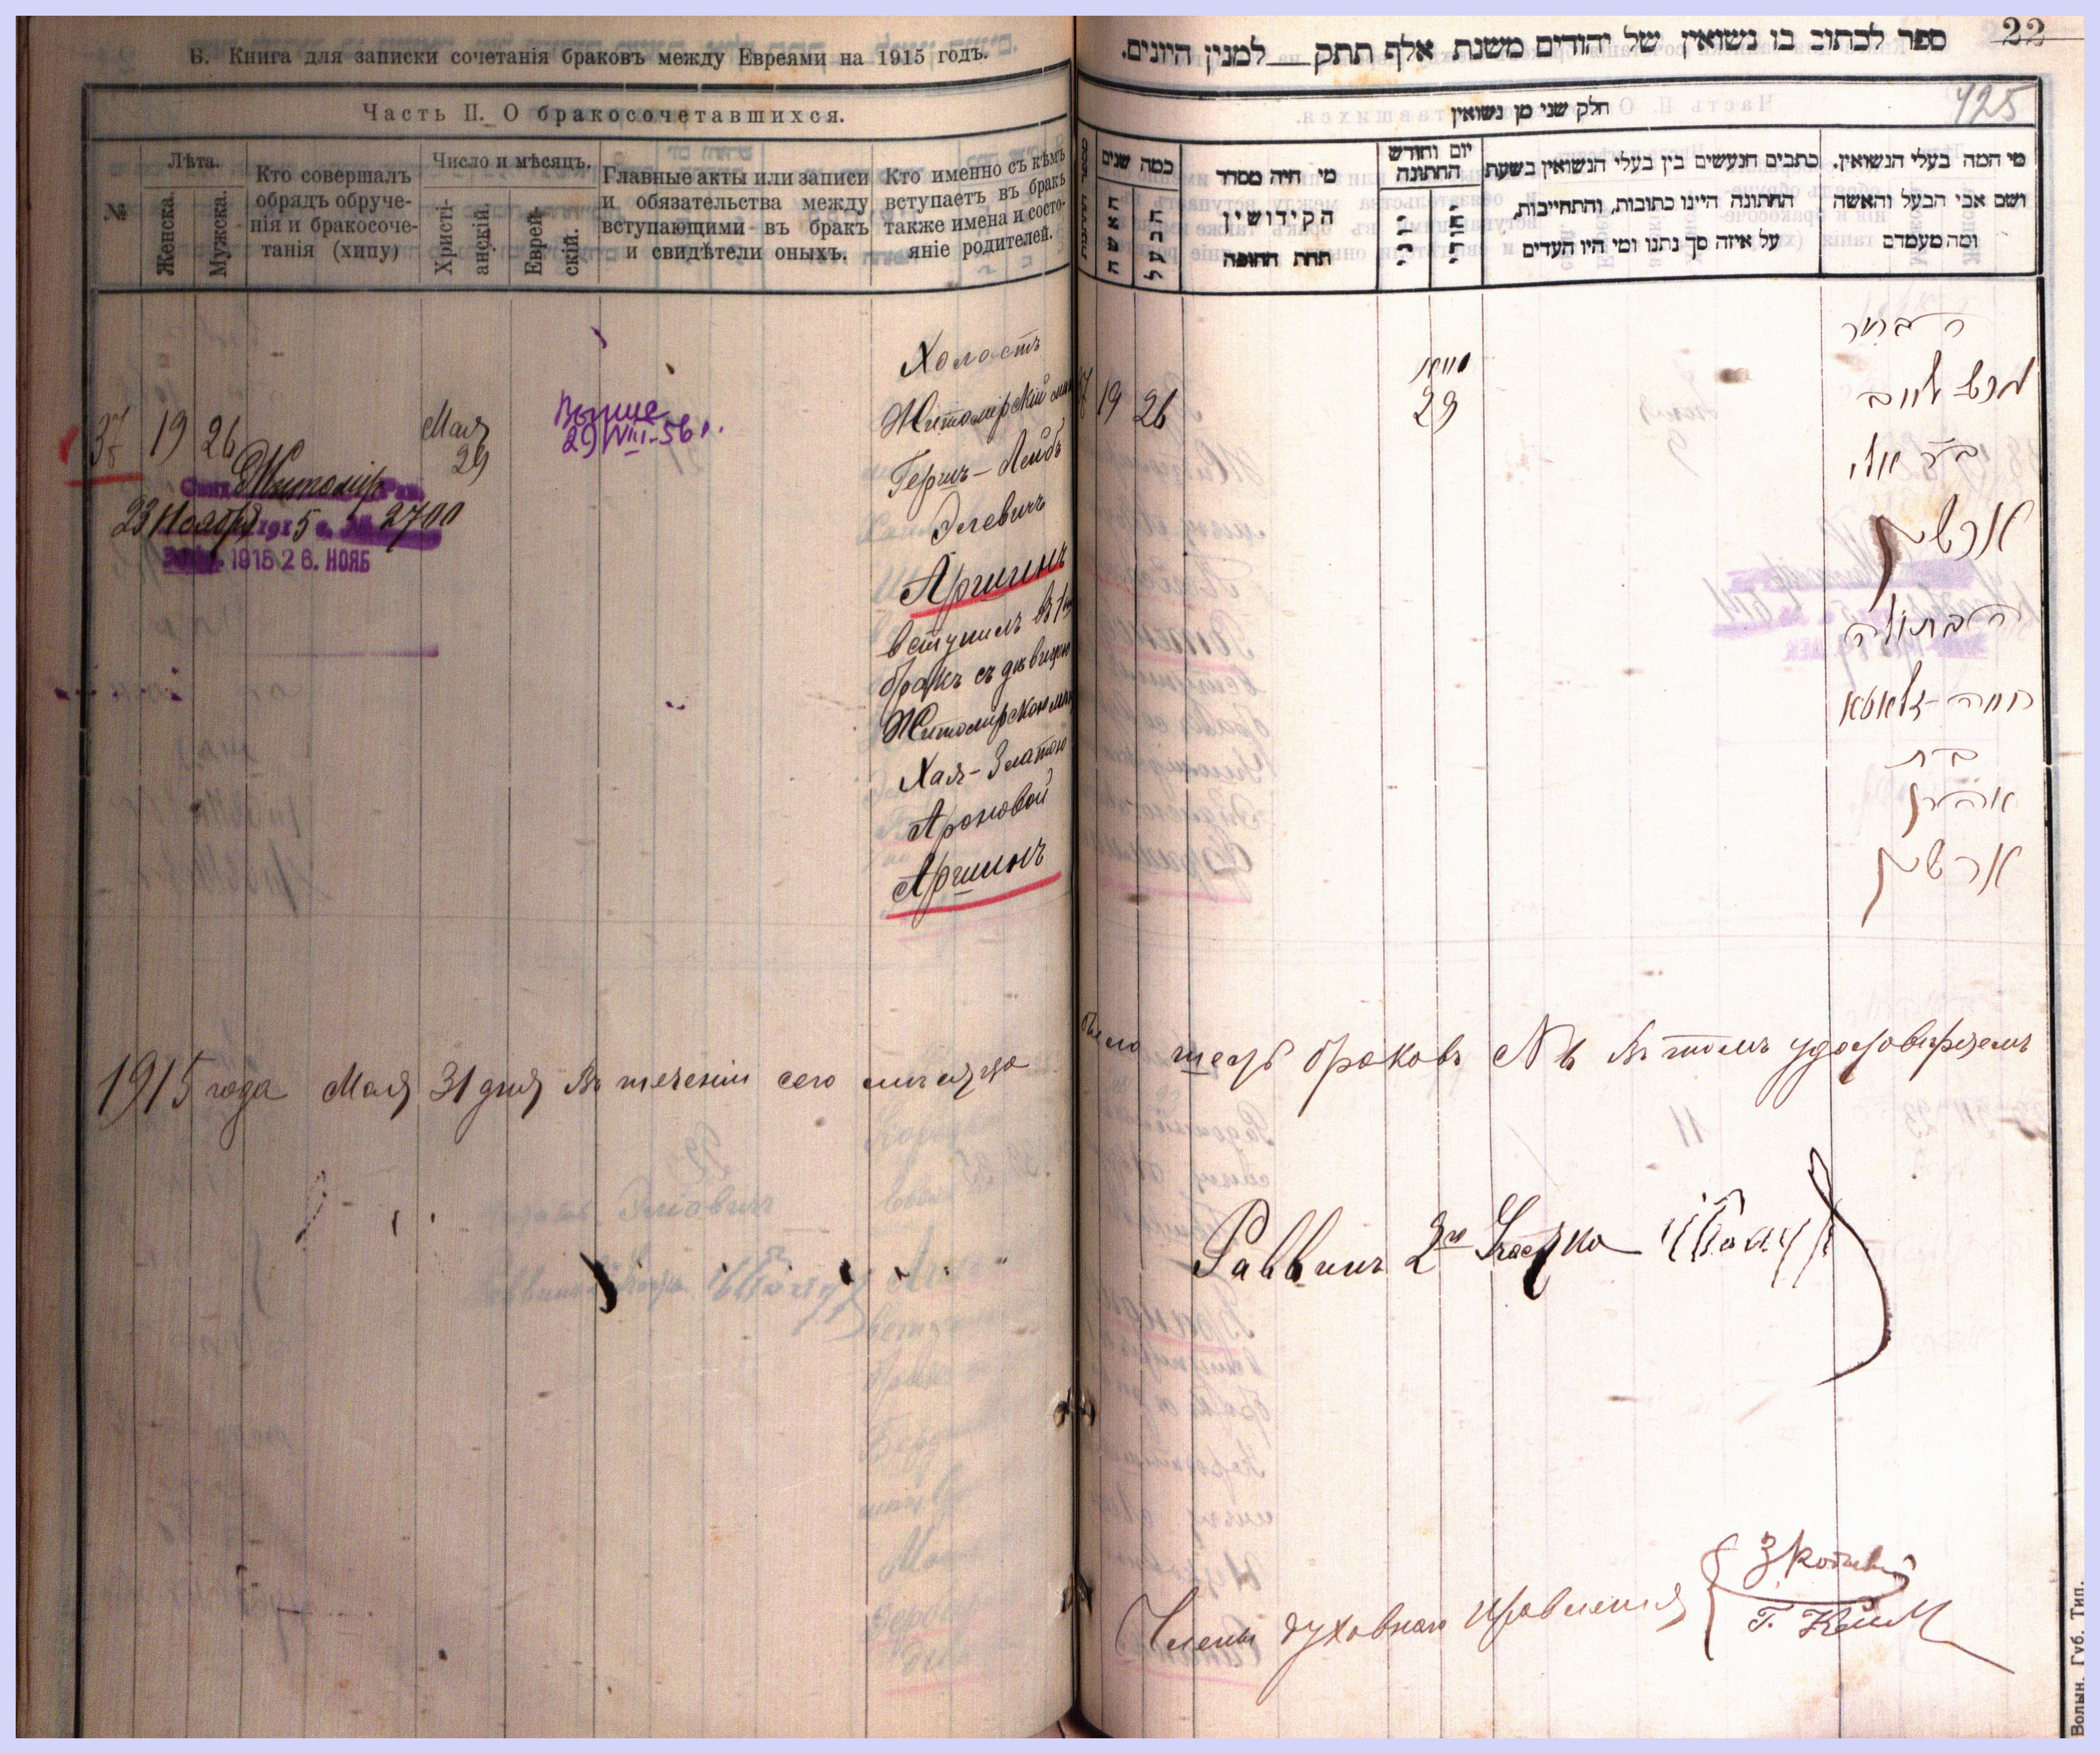 Б. Книга для записки сочетанія браковъ между Евреями на 1915 годъ.
Часть II. О бракосочетавшихся.
№
Лѣта.
Женска.
Мужска.
Кто совершалъ
обрядъ обруче-
нія и бракосоче-
танія (хипу)
Число и мѣсяцъ.
Христі-
анскій.
Еврей-
скій.
Главные акты или записи
и обязательства между
вступающими въ бракъ
и свидѣтели оныхъ.
Кто именно съ кѣмъ
вступаетъ въ бракъ
также имена и состо-
яніе родителей.
19
26
Мая
29
Выше
29/VIII-56 г.
Житомір
23 Ноября 1915 г. № 2700
1915 26. НОЯБ
Холостъ
Житомирскій
Гершъ-Лейбъ
Элевичъ
Аршинъ
вступилъ въ 1й
бракъ съ дѣвицею
Житомирскою
Хая-Златою
Ароновой
Аршинъ
1915 года Мая 31 дня Въ теченіи сего мѣсяца
22
ספר לכתוב בו נשואין של יהודים משנת אלף תתק למנין היונים.
125
חלק שני מן נשואין
כמה שנים
האשה
הבעל
מי היה מסדר
הקידושין
תחת החופה
יום וחודש
החתונה
כתבים הנעשים בין בעלי הנשואין בשעת
החתונה היינו כתובות, והתחייבות,
על איזה סך נתנו ומי היו העדים
מי המה בעלי הנשואין.
ושם אבי הבעל והאשה
ומה מעמדם
19
26
מאי
29
הבחור
הרש לייב
בר אלי
ארשין
הבתולה
חיה-זלאטא
בת
אהרן
ארשין
было шесть браковъ № 6 въ томъ удостовѣряемъ
Раввинъ 2го Участка
Члены духовнаго правленія
Волын. Губ. Тип.